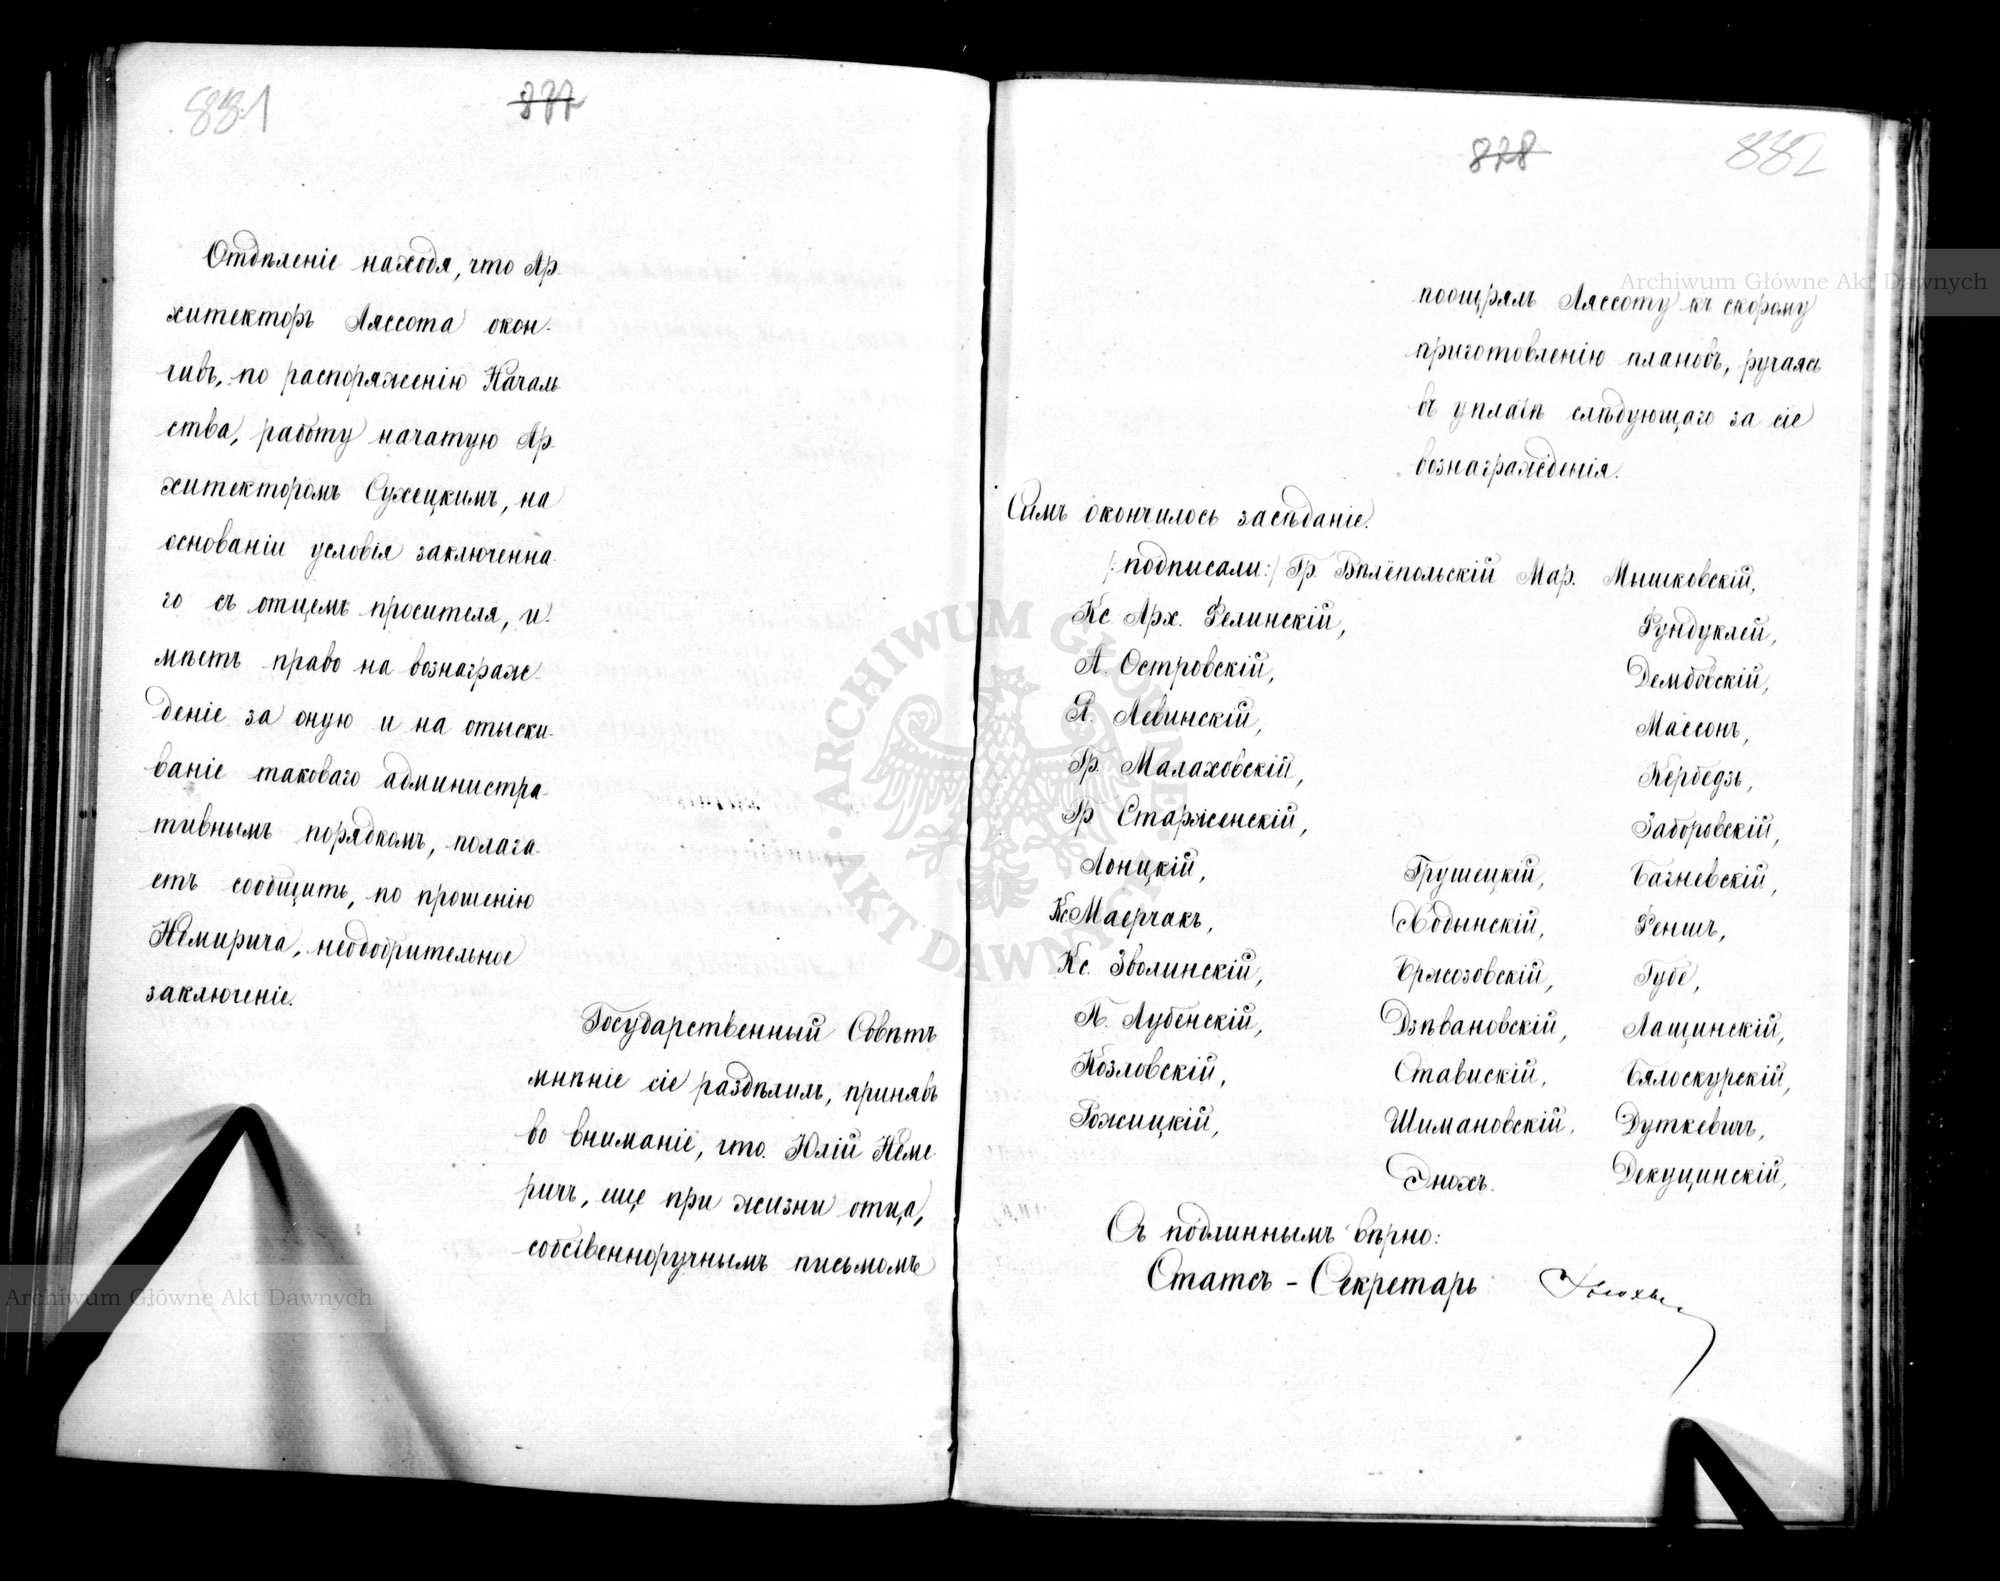 881
877
Отдѣленіе находя, что Ар-
хитекторъ Ляссота окон-
чивъ, по распоряженію Началь
ства, работу начатую Ар-
хитекторомъ Сухецкимъ, на
основаніи условія заключенна-
го съ отцемъ просителя, и-
мѣетъ право на вознаграж-
деніе за оную и на отыски-
ваніе таковаго администра-
тивнымъ порядкомъ, полага-
етъ сообщить, по прошенію
Немирича, неодобрительное
заключеніе.
Государственный Совѣтъ
мнѣніе сіе раздѣлилъ, принявъ
во вниманіе, что Юлій Неме-
ричъ, еще при жизни отца,
собственноручнымъ письмомъ
878
882
поощрялъ Ляссоту къ скорому
приготовленію плановъ, ручаясь
въ уплатѣ слѣдующаго за сіе
вознагражденія.
Симъ окончилось засѣданіе.
/:подписали:/ Гр. Вѣлёпольскій Мар. Мышковскій,
Кс. Арх. Фелинскій, Фундуклей,
А. Островскій, Дембовскій,
Я. Левинскій, Массонъ,
Гр. Малаховскій, Кербедзь,
Гр Старженскій, Заборовскій,
Лонцкій, Грушецкій, Багневскій,
Кс. Маерчакъ, Водынскій, Феншъ,
Кс. Зволинскій, Бржозовскій, Губе,
П. Лубенскій, Дзѣвановскій, Лащинскій,
Козловскій, Ставискій, Бялоскурскій,
Рожицкій, Шимановскій, Дуткевичъ,
Энохъ. Декуцинскій,
Съ подлиннымъ вѣрно:
Статсъ-Секретарь Энохъ
Archiwum Główne Akt Dawnych
Archiwum Główne Akt Dawnych
ARCHIWUM GŁÓWNE AKT DAWNYCH